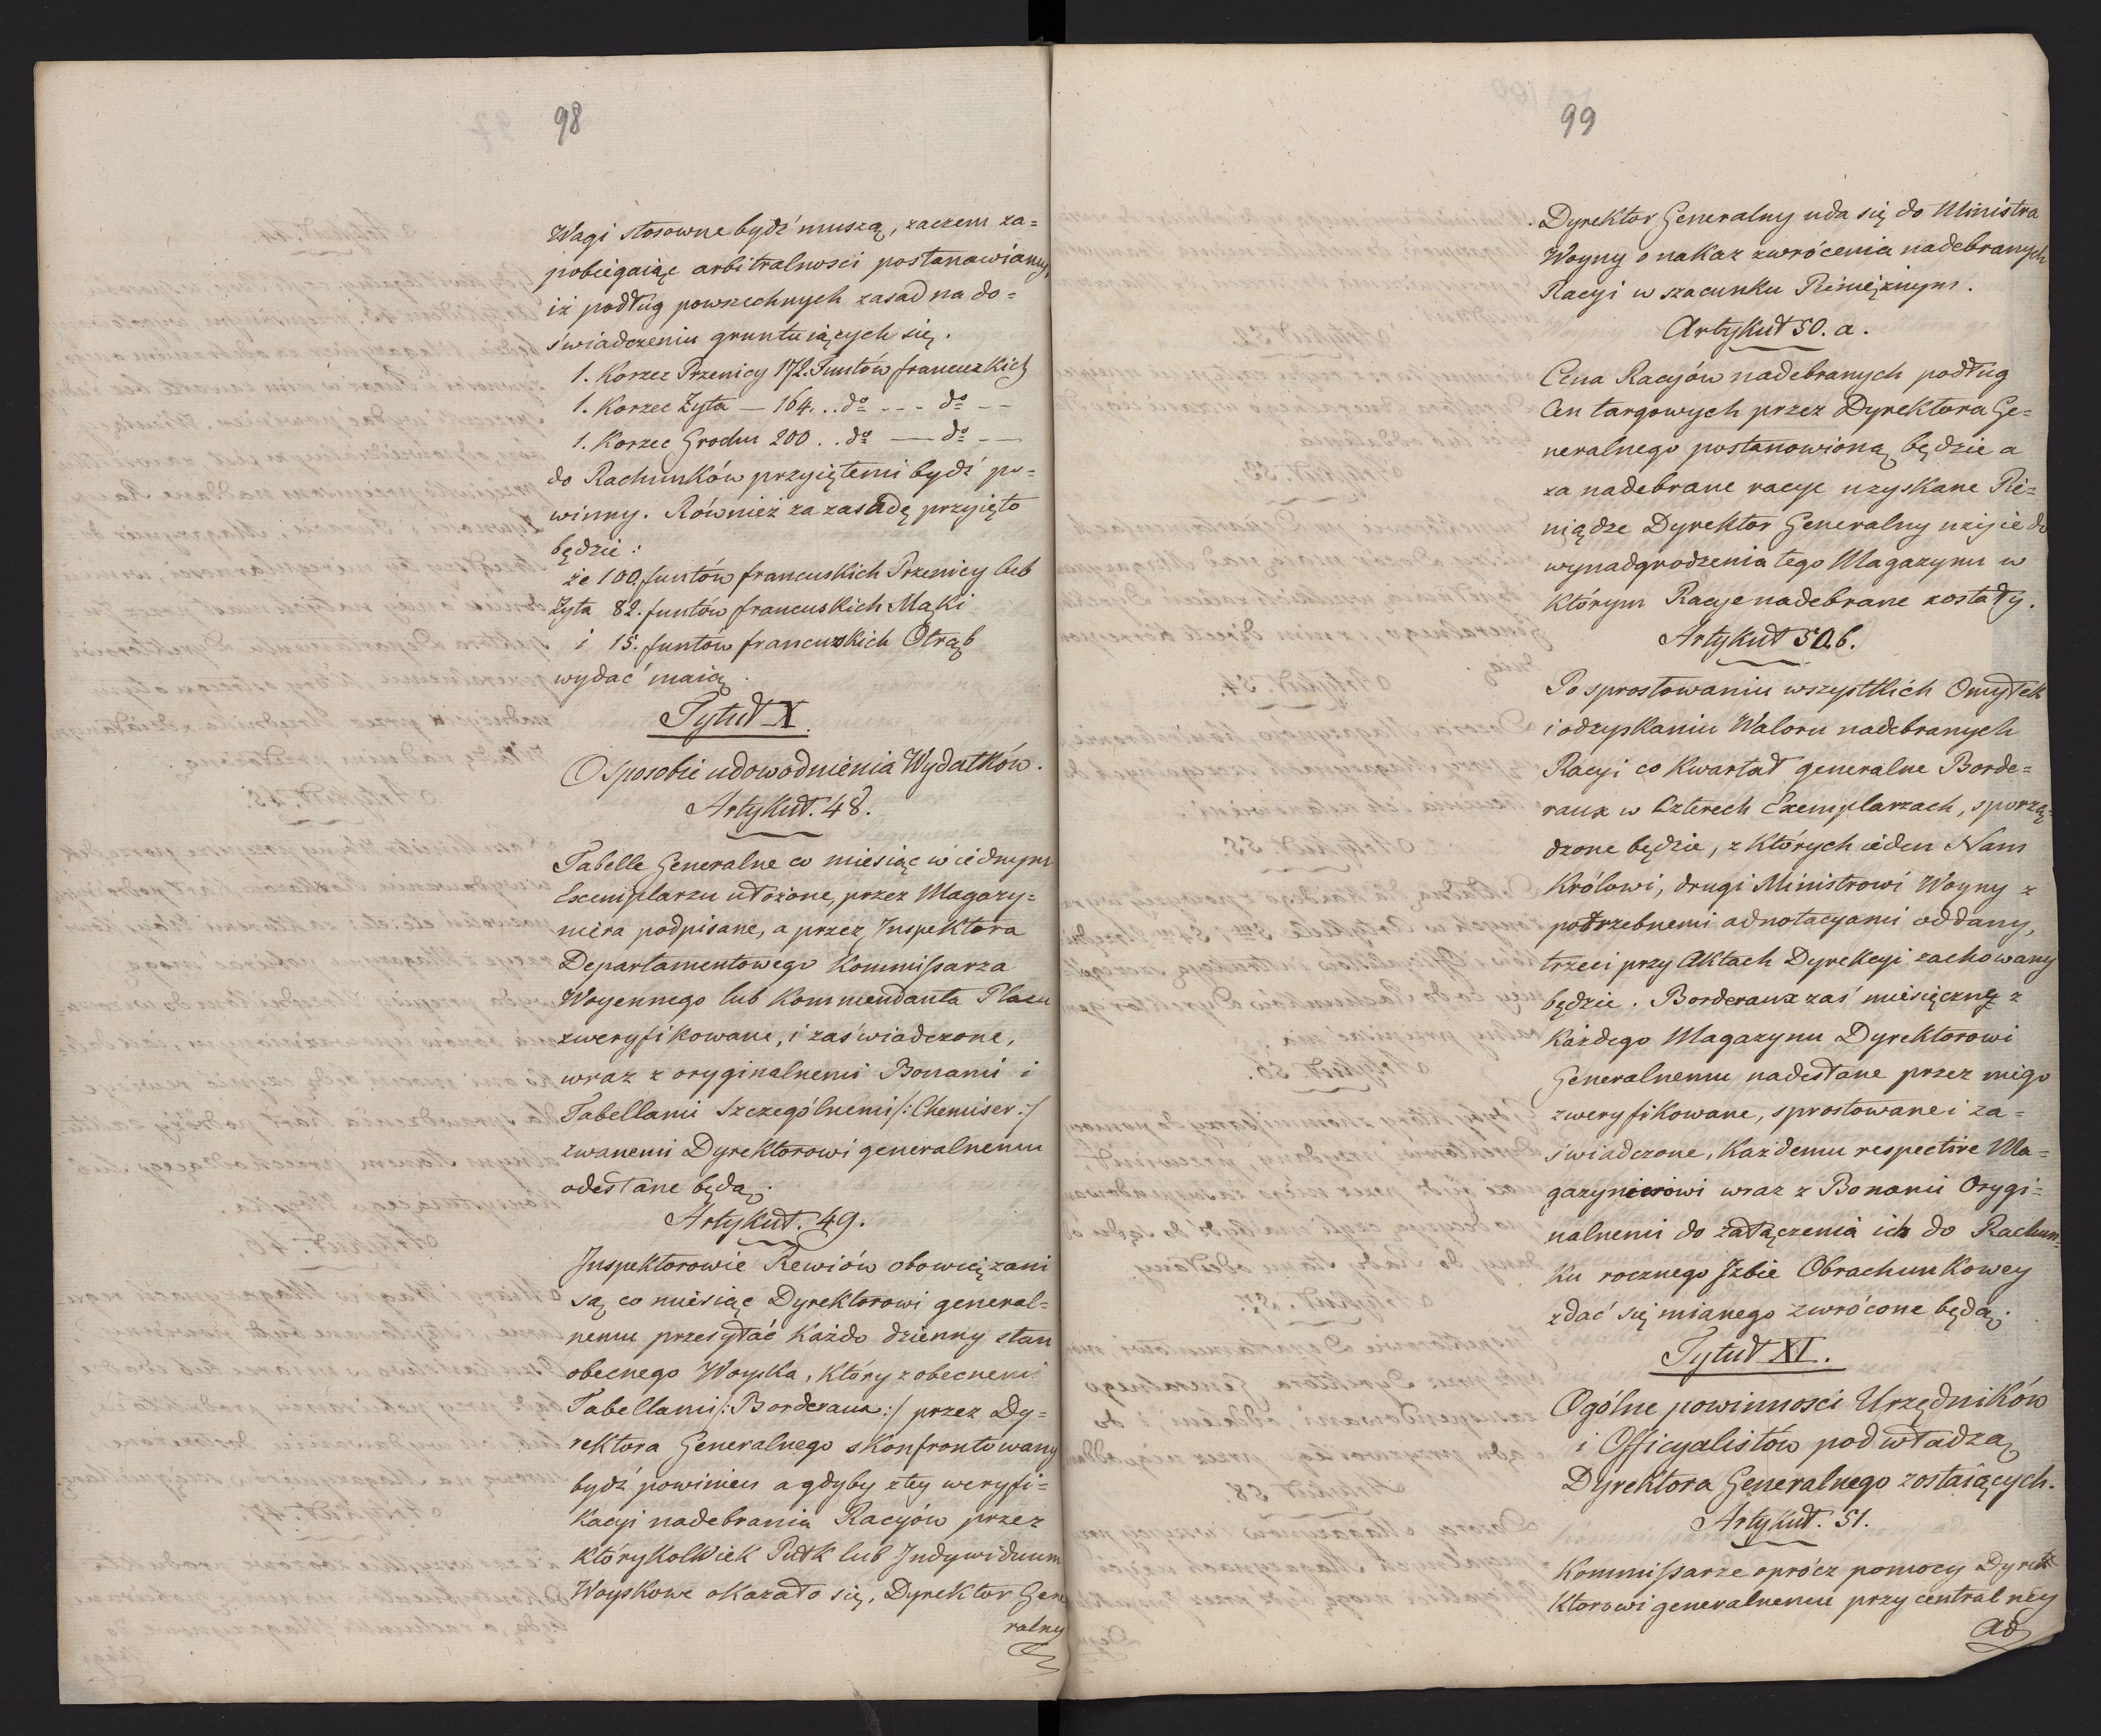 98
Wagi stosowne bydź muszą, zaczem za=
pobiegaiąc arbitralności postanawiamy,
iż podług powszechnych zasad na do=
świadczeniu gruntuiących się.
1. Korzec Przenicy 172. Funtów francuzkich
1. Korzec Żyta — 164. . . do - - - do - -
1. Korzec Grochu 200 . . do — do - —
do Rachunków przyiętemi bydź po=
winny. Również za zasadę przyięto
będzie:
że 100. funtów francuskich Przenicy lub
Żyta 82. funtów francuskich Mąki
i 15. funtów francuzkich Otrąb
wydać maią.
Tytuł X.
O sposobie udowodnienia Wydatków.
Artykuł. 48.
Tabelle Generalne co miesiąc w iednym
Exemplarzu ułożone, przez Magazy=
niera podpisane, a przez Inspektora
Departamentowego Kommissarza
Woyennego lub Kommendanta Placu
zweryfikowane, i zaświadczone,
wraz z oryginalnemi Bonami i
Tabellami Szczególnemi /: Chemiser :/
zwanemi Dyrektorowi generalnemu
odesłane będą.
Artykuł. 49.
Inspektorowie Rewiów obowiązani
są co miesiąc Dyrektorowi general=
nemu przesyłać Każdo dzienny stan
obecnego Woyska, Który z obecnemi
Tabellami /: Borderaux :/ przez Dy=
rektora Generalnego skonfrontowany
bydź powinien a gdyby z tey weryfi=
Kacyi nadebrania Racyów przez
KtóryKolwiek Pułk lub Indywiduum
Woyskowe okazało się, Dyrektor Gene
ralny
99
Dyrektor Generalny uda się do Ministra
Woyny o nakaz zwrócenia nadebranych
Racyi w szacunku Pieniężnym.
Artykuł 50. a.
Cena Racyów nadebranych podług
Cen targowych przez Dyrektora Ge=
neralnego postanowioną będzie a
za nadebrane racye uzyskane Pie=
niądze Dyrektor Generalny użyie do
wynadgrodzenia tego Magazynu w
Którym Racye nadebrane zostały.
Artykuł 50. b.
Po sprostowaniu wszystkich Omyłek
i odzyskaniu Waloru nadebranych
Racyi co Kwartał generalne Borde=
raux w Czterech Exemplarzach, sporzą=
dzone będzie, z Których ieden Nam
Królowi, drugi Ministrowi Woyny z
potrzebnemi adnotacyami oddany,
trzeci przy Aktach Dyrekcyi zachowany
będzie. Borderaux zaś miesięczne z
Każdego Magazynu Dyrektorowi
Generalnemu nadesłane przez niego
zweryfikowane, sprostowane i za=
świadczone, Każdemu respective Ma=
gazynierowi wraz z Bonami Orygi=
nalnemi do załączenia ich do Rachun=
Ku rocznego Izbie Obrachunkowey
zdać się mianego zwrócone będą.
Tytuł XI.
Ogólne powinności Urzędników
i Officyalistów pod władzą
Dyrektora Generalnego zostaiących.
Artykuł. 51.
Kommissarze oprócz pomocy Dyre
Ktorowi generalnemu przy centralney
Ad